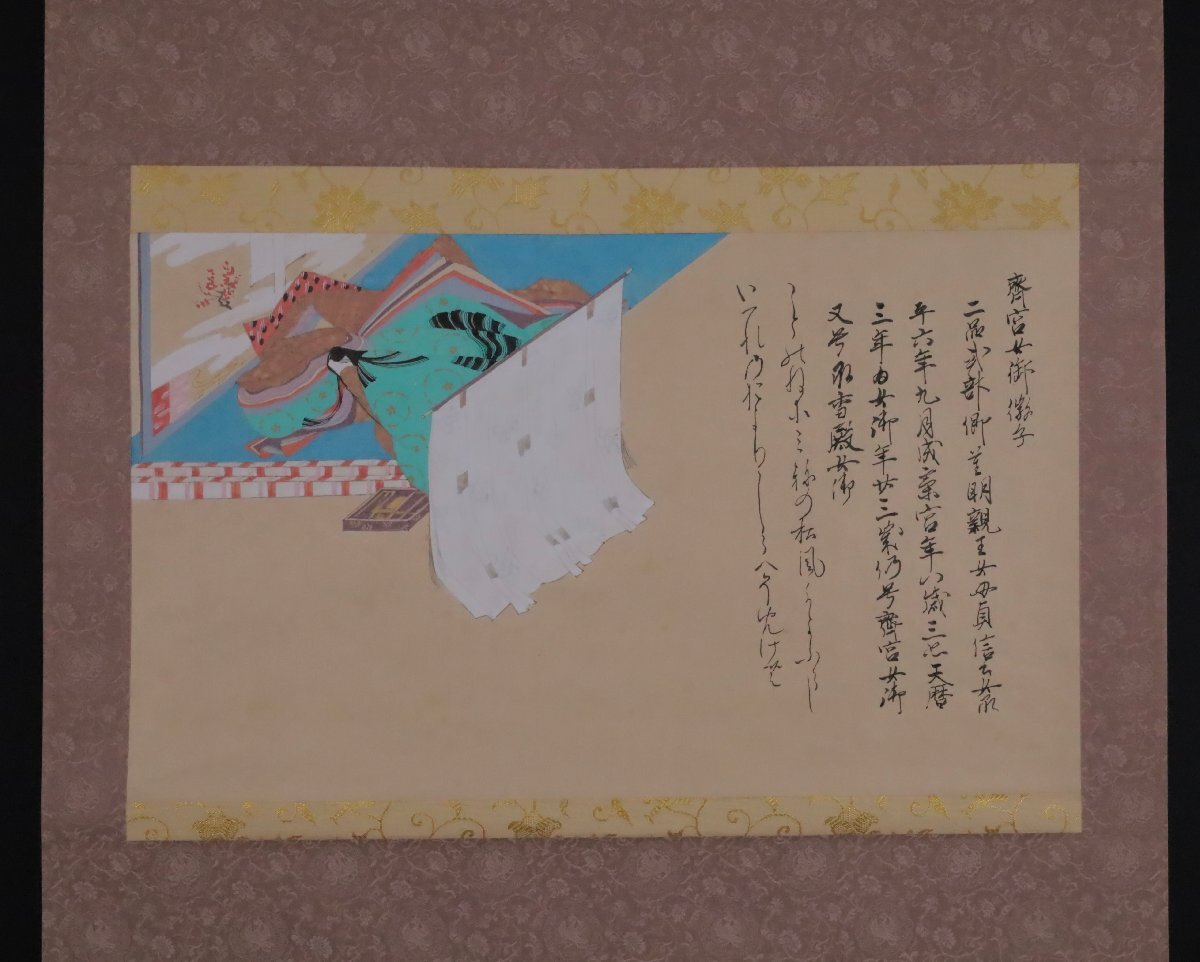 齋宮女御徽子
二品式部卿重明親王女母貞信公女
平六年九月成齋宮年八歳三品天暦
三年為女御年廿三歳仍号齋宮女御
又号承香殿女御
ことのねにみねの松風かよふらし
いつれのおよりしらへそめけむ